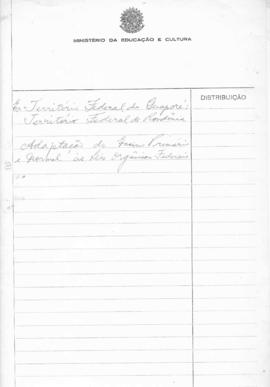 MINISTÉRIO DA EDUCAÇÃO E CULTURA
DISTRIBUIÇÃO
Ex-Território Federal do Guaporé
Território Federal de Rondônia
Adaptação do Ensino Primário
e Normal às Leis Orgânicas Federais